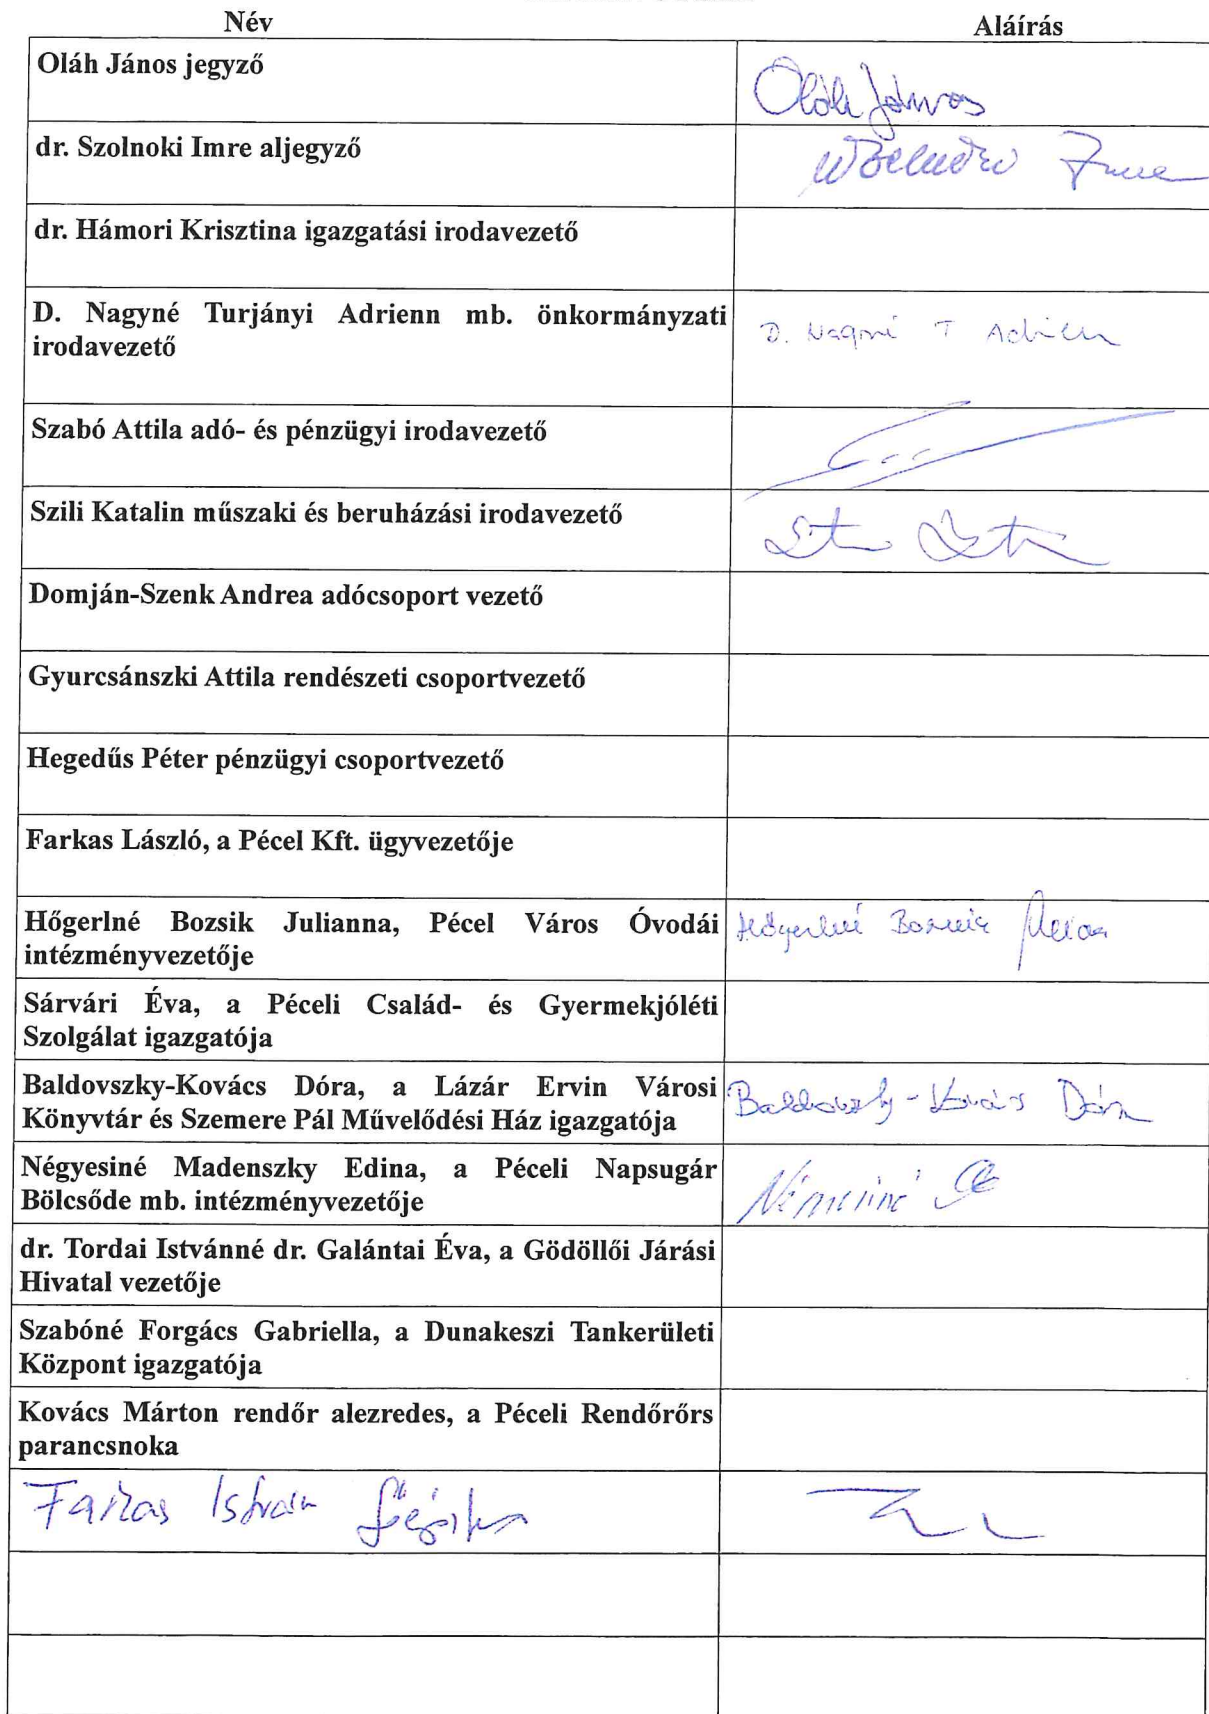 Név Aláírás
Oláh János jegyző Oláh János
dr. Szolnoki Imre aljegyző Imre
dr. Hámori Krisztina igazgatási irodavezető
D. Nagyné Turjányi Adrienn mb. önkormányzati
irodavezető D. Nagyné T Adrienn
Szabó Attila adó- és pénzügyi irodavezető
Szili Katalin műszaki és beruházási irodavezető
Domján-Szenk Andrea adócsoport vezető
Gyurcsánszki Attila rendészeti csoportvezető
Hegedűs Péter pénzügyi csoportvezető
Farkas László, a Pécel Kft. ügyvezetője
Hőgerlné Bozsik Julianna, Pécel Város Óvodái Hőgerlné Bozsik
intézményvezetője
Sárvári Éva, a Péceli Család- és Gyermekjóléti
Szolgálat igazgatója
Baldovszky-Kovács Dóra, a Lázár Ervin Városi Baldovszky-Kovács Dóra
Könyvtár és Szemere Pál Művelődési Ház igazgatója
Négyesiné Madenszky Edina, a Péceli Napsugár
Bölcsőde mb. intézményvezetője
dr. Tordai Istvánné dr. Galántai Éva, a Gödöllői Járási
Hivatal vezetője
Szabóné Forgács Gabriella, a Dunakeszi Tankerületi
Központ igazgatója
Kovács Márton rendőr alezredes, a Péceli Rendőrőrs
parancsnoka
Farkas István főépítész